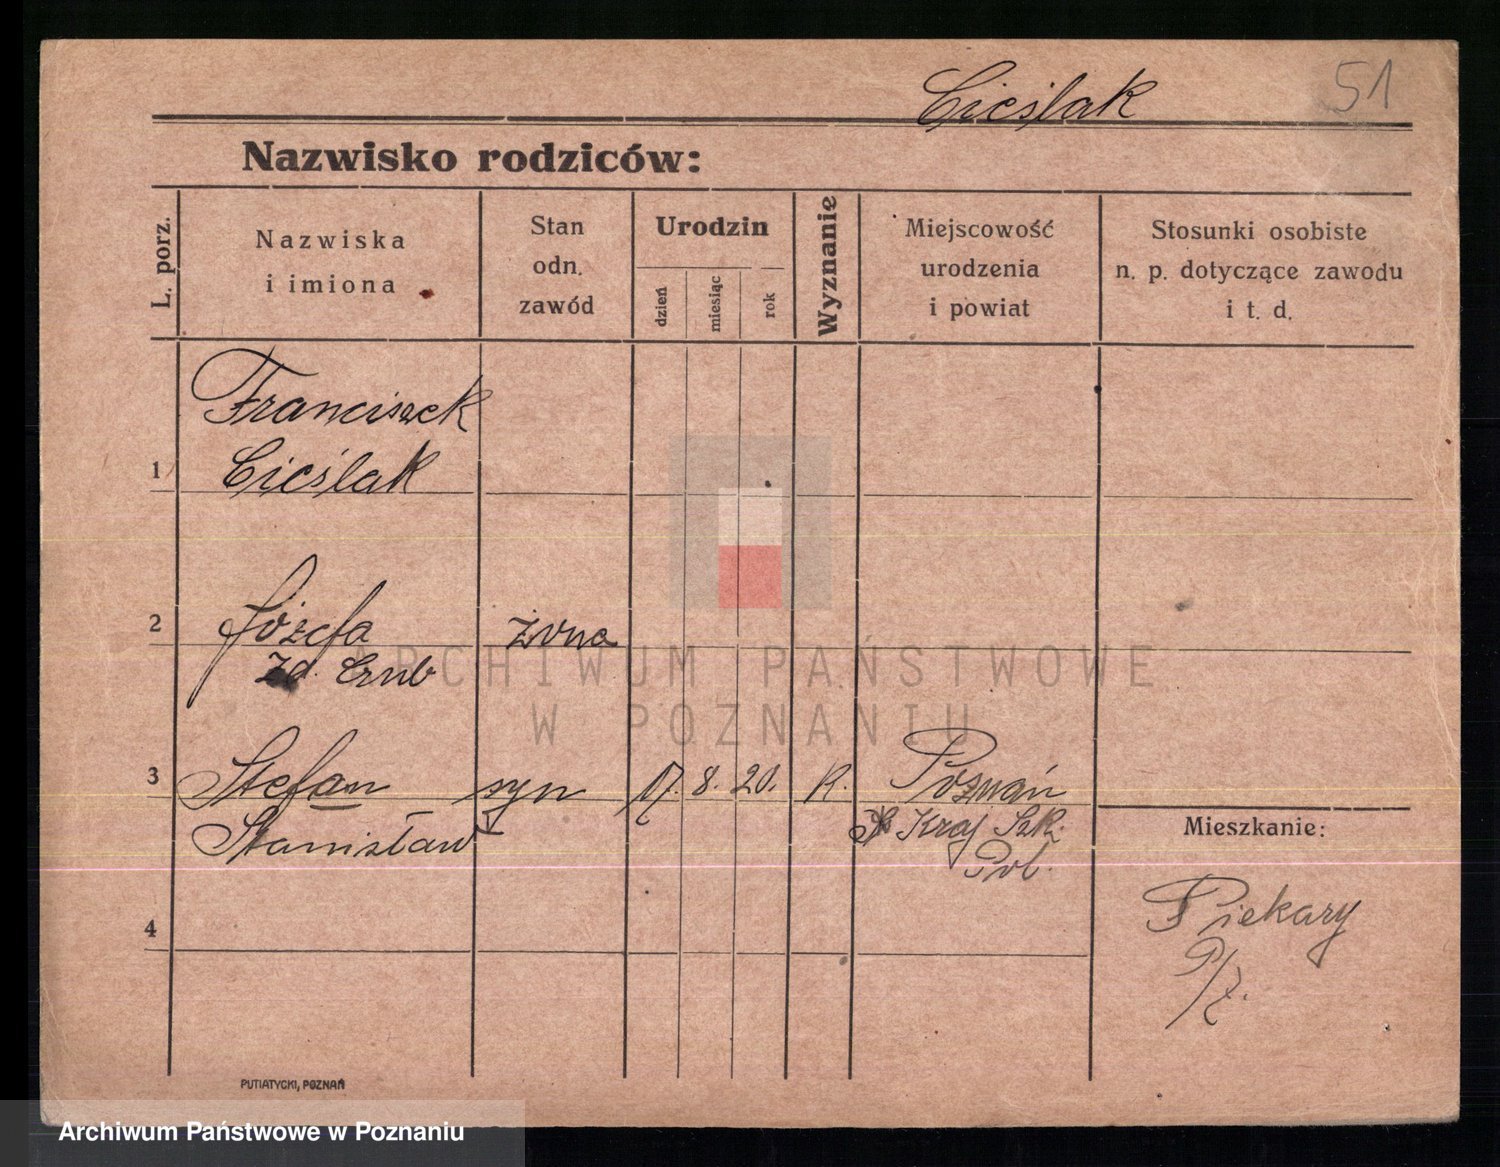 Cieślak 51
Nazwisko rodziców:
L. porz.
Nazwiska
i imiona
Stan
odn.
zawód
Urodzin
dzień
miesiąc
rok
Wyznanie
Miejscowość
urodzenia
i powiat
Stosunki osobiste
n. p. dotyczące zawodu
i t. d.
Franciszek
1 Cieślak
2 Józefa żona
zd.
ARCHIWUM PAŃSTWOWE
W POZNANIU
3 Stefan syn 17. 8. 20. R. Poznań
Stanisław Kraj Szk.
Pol.
Mieszkanie:
Piekary
4
PUTIATYCKI, POZNAŃ
Archiwum Państwowe w Poznaniu